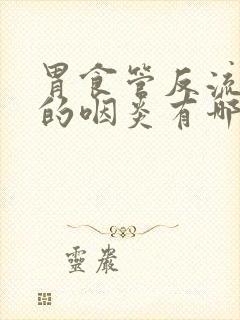 胃食管反流
的咽炎有哪
靈巖